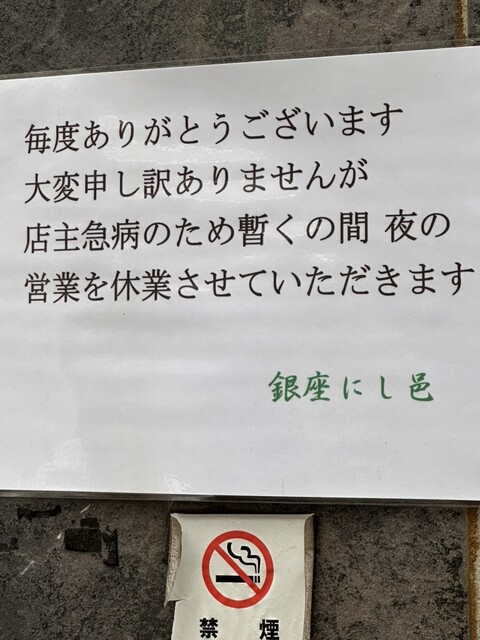 毎度ありがとうございます
大変申し訳ありませんが
店主急病のため暫くの間 夜の
営業を休業させていただきます
銀座にし邑
禁 煙